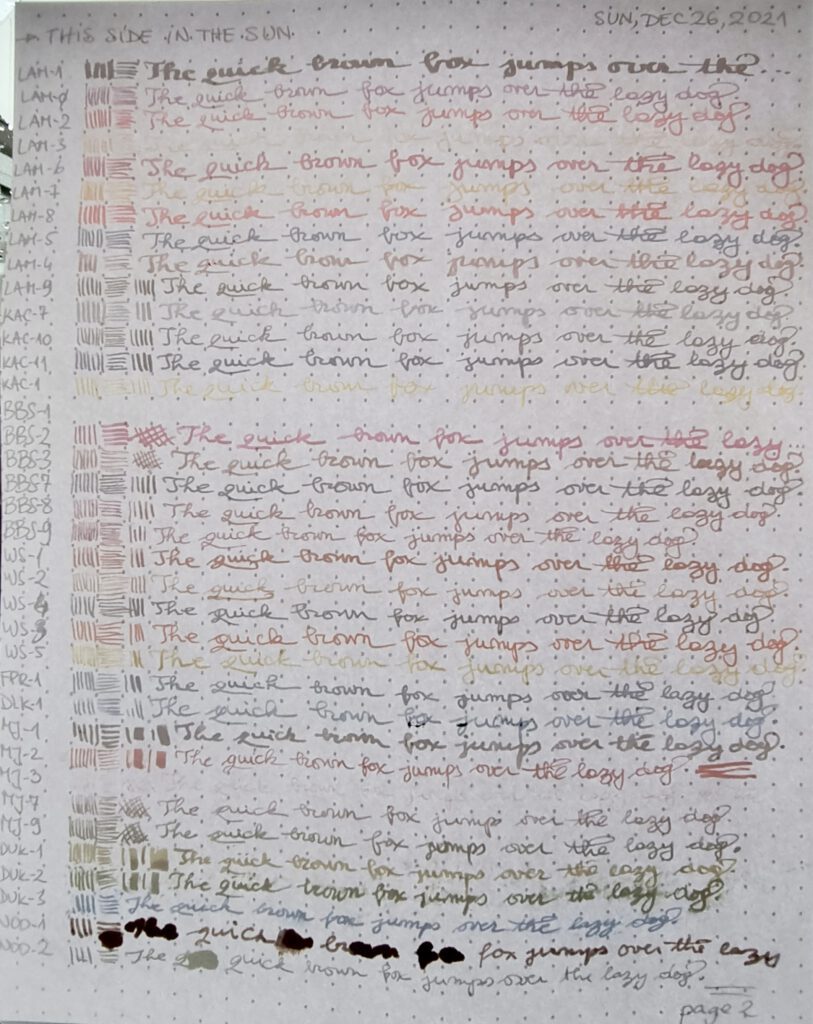 SUN, DEC 26, 2021
→ THIS SIDE IN THE SUN.
LAM-1 The quick brown fox jumps over the...
LAM-0 The quick brown fox jumps over the lazy dog.
LAM-2 The quick brown fox jumps over the lazy dog.
LAM-3
LAM-6 The quick brown fox jumps over the lazy dog.
LAM-7 The quick brown fox jumps over the lazy dog.
LAM-8 The quick brown fox jumps over the lazy dog.
LAM-5 The quick brown fox jumps over the lazy dog.
LAM-4 The quick brown fox jumps over the lazy dog.
LAM-9 The quick brown fox jumps over the lazy dog.
KAC-7 The quick brown fox jumps over the lazy dog.
KAC-10 The quick brown fox jumps over the lazy dog.
KAC-11 The quick brown fox jumps over the lazy dog.
KAC-1 The quick brown fox jumps over the lazy dog.
BBS-1
BBS-2 The quick brown fox jumps over the lazy...
BBS-3 The quick brown fox jumps over the lazy dog.
BBS-7 The quick brown fox jumps over the lazy dog.
BBS-8 The quick brown fox jumps over the lazy dog.
BBS-9 The quick brown fox jumps over the lazy dog.
WŚ-1 The quick brown fox jumps over the lazy dog.
WŚ-2 The quick brown fox jumps over the lazy dog.
WŚ-4 The quick brown fox jumps over the lazy dog.
WŚ-3 The quick brown fox jumps over the lazy dog.
WŚ-5 The quick brown fox jumps over the lazy dog.
FPR-1 The quick brown fox jumps over the lazy dog.
DLK-1 The quick brown fox jumps over the lazy dog.
MJ-1 The quick brown fox jumps over the lazy dog.
MJ-2 The quick brown fox jumps over the lazy dog.
MJ-3
MJ-7 The quick brown fox jumps over the lazy dog.
MJ-9 The quick brown fox jumps over the lazy dog.
DUK-1 The quick brown fox jumps over the lazy dog.
DUK-2 The quick brown fox jumps over the lazy dog.
DUK-3 The quick brown fox jumps over the lazy dog.
NOO-1 The quick brown fox jumps over the lazy
NOO-2 The quick brown fox jumps over the lazy dog.
page 2